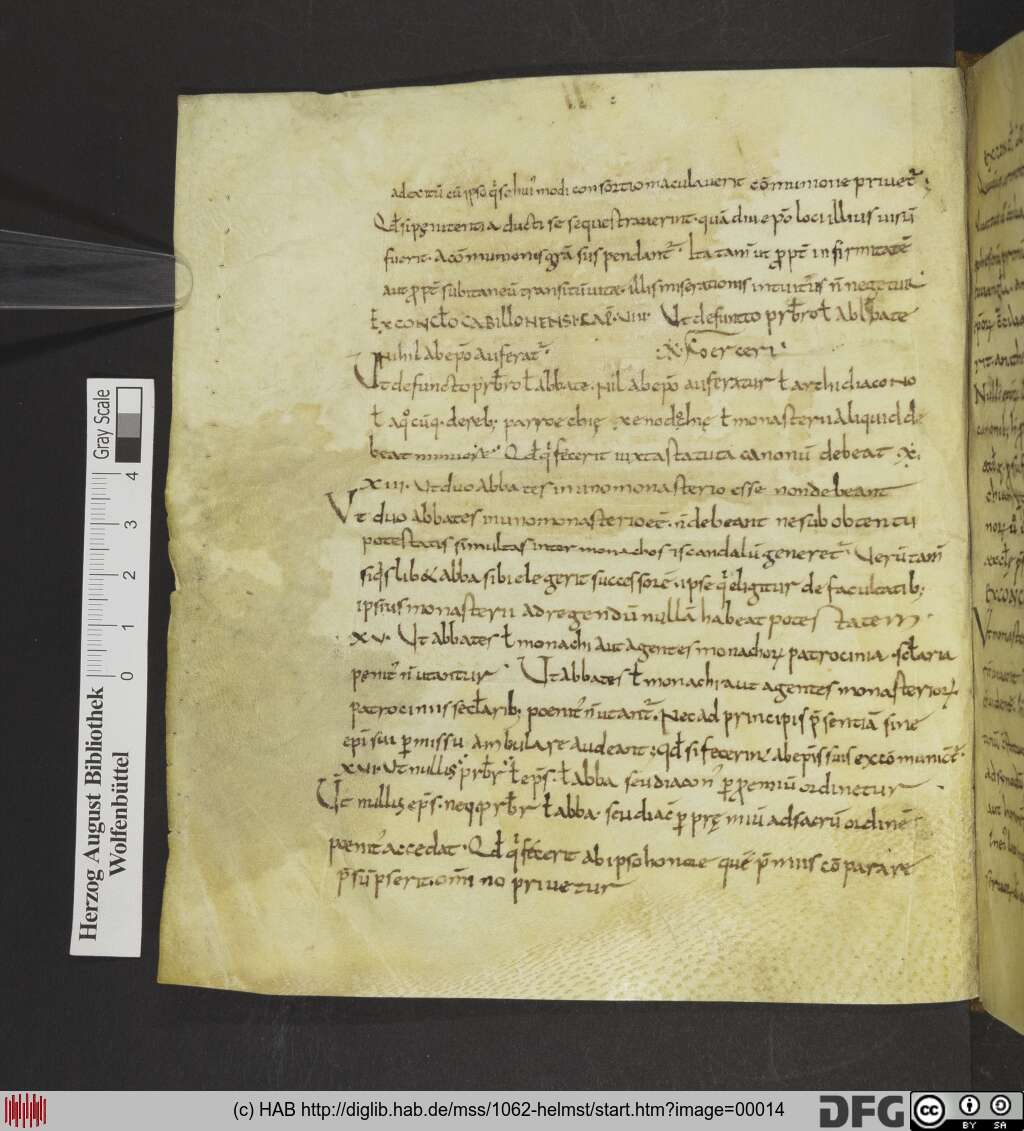 ad exitū cū ipso q̊ se hui᾽modi consortio maculaverit cōmunione privet̄ :
Qd̄ si penitentia ducti se sequestraverint · quā diu ep̄o loci illius visū
fuerit · a cōmunionis gr̄a suspendant̄ · Ita tam̄ ut ꝓpt̄ infirmitatē
aut ꝓpt̄ subitaneū transitū vitæ · illis miserationis intuitus n̄ negetur
EX CONCL̄O CABILLONENSI · CAP̄ · VIIII · Ut defuncto pr̄bro ł abbate
Nihil ab ep̄o auferat̄ ·
Ut defuncto pr̄bro ł abbate · nil ab ep̄o auferatur ł archidiacono
ł a q̊cūq · de reb; parroechię xenodochię ł monasterii aliquid de
beat minui · Qd̄ q̊ fecerit iuxta statuta canonū debeat
XIII · Ut duo abbates in uno monasterio esse non debeant
Ut duo abbates in uno monasterio et̄ · n̄ debeant ne sub obtentu
potestatis simultas inter monachos & scandalū generet̄ · Verūtam̄
si q̊slib& abba sibi elegerit successorē · ipse q̊ eligitur de facultatib;
ipsius monasterii ad regendū nullā habeat potestatem ·
· XV · Ut abbates ł monachi aut agentes monachoꝝ patrocinia sc̄laria
penit᾽ n̄ utantur · Ut abbates ł monachi aut agentes monasterioꝝ
patrociniis sec̄larib; poenit᾽ n̄ utant̄ · Nec ad principis p̄sentiā sine
epī sui ꝑmissu ambulare audeant ; qd̄ si fecerin᾽ ab ep̄is suis excōmunicēt̄
XVI · Ut nullus pr̄br ł ep̄s · ł abba seu diacon᾽ ꝑ p̄emiū ordinetur
Ut nullus ep̄s · neq pr̄br ł abba · seu diac̄ ꝑ pręmiū ad sacrū ordinē
poenit᾽ accedat · Qd̄ q̊ fecerit ab ipso honore quē p̄miis cōparare
p̄sūpserit · om̄ino privetur
Gray Scale
0 1 2 3 4
Herzog August Bibliothek
Wolfenbüttel
(c) HAB http://diglib.hab.de/mss/1062-helmst/start.htm?image=00014
DFG
cc BY SA